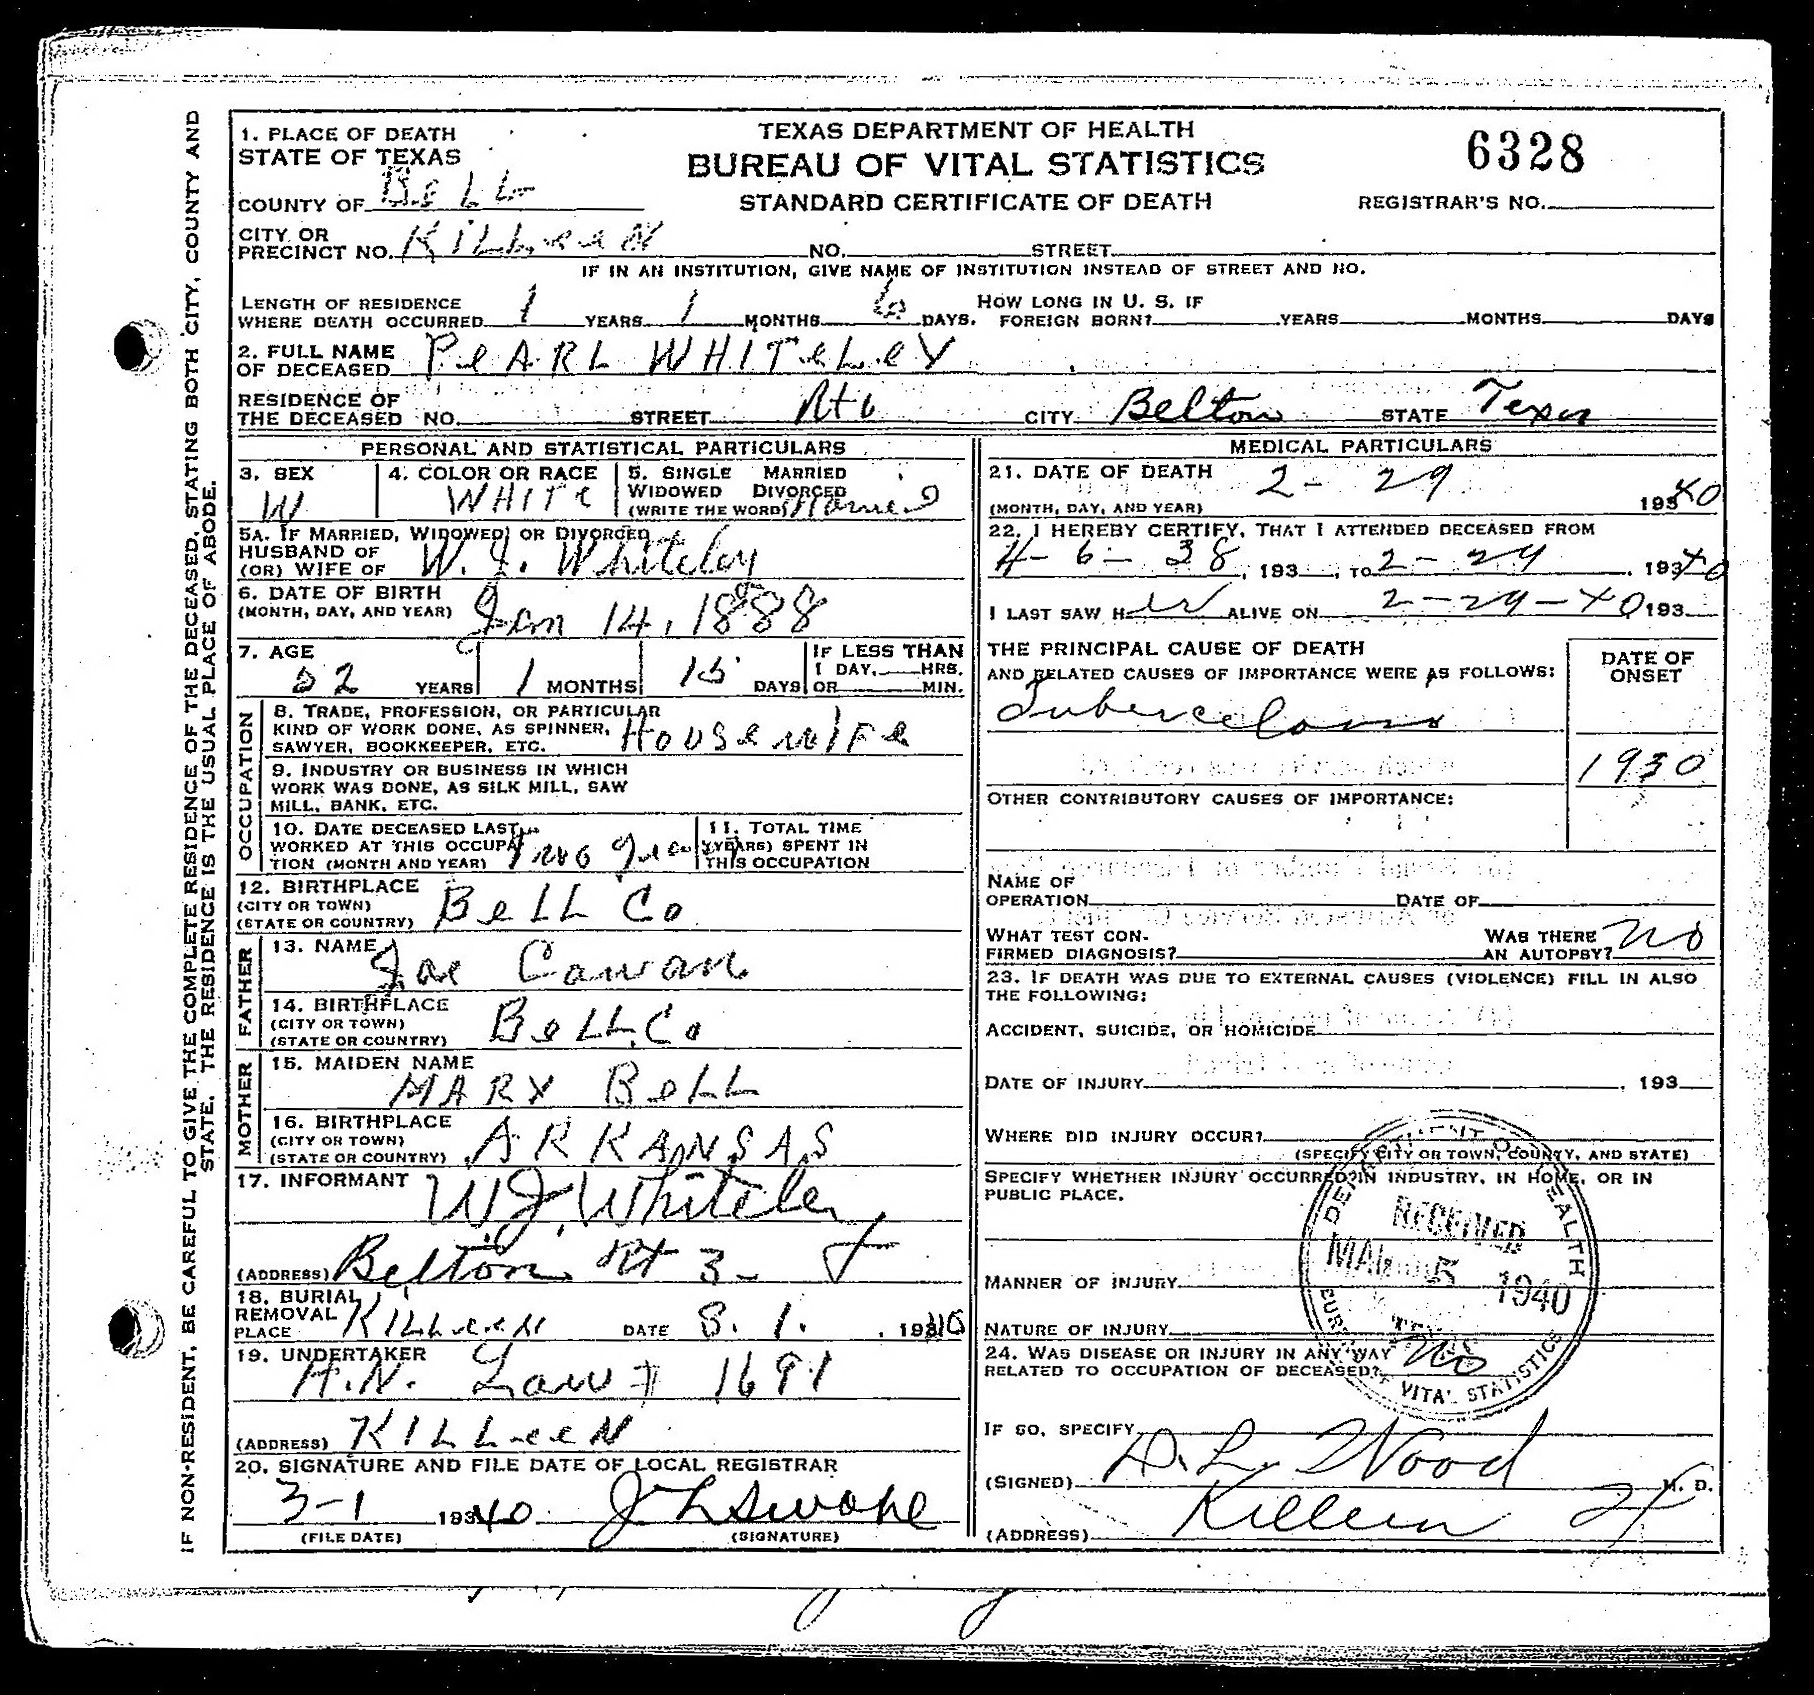 1. PLACE OF DEATH
STATE OF TEXAS
COUNTY OF BeLL
TEXAS DEPARTMENT OF HEALTH
BUREAU OF VITAL STATISTICS
STANDARD CERTIFICATE OF DEATH
6328
REGISTRAR'S NO.
CITY OR
PRECINCT NO. KILLeeN NO. STREET
IF IN AN INSTITUTION, GIVE NAME OF INSTITUTION INSTEAD OF STREET AND NO.
LENGTH OF RESIDENCE
WHERE DEATH OCCURRED 1 YEARS 1 MONTHS 6 DAYS. HOW LONG IN U. S. IF FOREIGN BORN? YEARS MONTHS DAYS
2. FULL NAME
OF DECEASED PeARL WHITeLeY
RESIDENCE OF
THE DECEASED NO. STREET Rt 6 CITY Belton STATE Texas
PERSONAL AND STATISTICAL PARTICULARS
3. SEX W
4. COLOR OR RACE WHITe
5. SINGLE MARRIED
WIDOWED DIVORCED
(WRITE THE WORD) Married
5A. IF MARRIED, WIDOWED, OR DIVORCED
HUSBAND OF
(OR) WIFE OF W. J. Whiteley
6. DATE OF BIRTH
(MONTH, DAY, AND YEAR) Jan 14, 1888
7. AGE 52 YEARS 1 MONTHS 15 DAYS
IF LESS THAN
1 DAY, HRS.
OR MIN.
OCCUPATION
8. TRADE, PROFESSION, OR PARTICULAR
KIND OF WORK DONE, AS SPINNER,
SAWYER, BOOKKEEPER, ETC. HOUSewIFe
9. INDUSTRY OR BUSINESS IN WHICH
WORK WAS DONE, AS SILK MILL, SAW
MILL, BANK, ETC.
10. DATE DECEASED LAST
WORKED AT THIS OCCUPA
TION (MONTH AND YEAR)
11. TOTAL TIME
(YEARS) SPENT IN
THIS OCCUPATION
12. BIRTHPLACE
(CITY OR TOWN)
(STATE OR COUNTRY) BeLL Co
FATHER
13. NAME Joe Cowan
14. BIRTHPLACE
(CITY OR TOWN)
(STATE OR COUNTRY) BeLL Co
MOTHER
15. MAIDEN NAME
MARY BeLL
16. BIRTHPLACE
(CITY OR TOWN)
(STATE OR COUNTRY) ARKANSAS
17. INFORMANT W J Whiteley
(ADDRESS) Belton Rt 3
18. BURIAL
REMOVAL
PLACE KILLeeN DATE 3. 1. , 19340
19. UNDERTAKER
A.N. Law # 1691
(ADDRESS) KILLeeN
20. SIGNATURE AND FILE DATE OF LOCAL REGISTRAR
3-1 19340
(FILE DATE) (SIGNATURE)
MEDICAL PARTICULARS
21. DATE OF DEATH 2- 29
(MONTH, DAY, AND YEAR) 19340
22. I HEREBY CERTIFY, THAT I ATTENDED DECEASED FROM
4-6-38, 193 , TO 2-29 , 19340
I LAST SAW Her ALIVE ON 2-29-40 193
THE PRINCIPAL CAUSE OF DEATH
AND RELATED CAUSES OF IMPORTANCE WERE AS FOLLOWS:
DATE OF
ONSET
Tuberculosis
1930
OTHER CONTRIBUTORY CAUSES OF IMPORTANCE:
NAME OF
OPERATION DATE OF
WHAT TEST CON-
FIRMED DIAGNOSIS? WAS THERE
AN AUTOPSY? no
23. IF DEATH WAS DUE TO EXTERNAL CAUSES (VIOLENCE) FILL IN ALSO
THE FOLLOWING:
ACCIDENT, SUICIDE, OR HOMICIDE
DATE OF INJURY , 193
WHERE DID INJURY OCCUR?
(SPECIFY CITY OR TOWN, COUNTY, AND STATE)
SPECIFY WHETHER INJURY OCCURRED IN INDUSTRY, IN HOME, OR IN
PUBLIC PLACE.
MANNER OF INJURY
NATURE OF INJURY
24. WAS DISEASE OR INJURY IN ANY WAY
RELATED TO OCCUPATION OF DECEASED? no
IF SO, SPECIFY
(SIGNED) D. L. Wood M. D.
(ADDRESS) Killeen
DEPARTMENT OF HEALTH
RECEIVED
MAR 5 1940
TEXAS
BUREAU OF VITAL STATISTICS
IF NON-RESIDENT, BE CAREFUL TO GIVE THE COMPLETE RESIDENCE OF THE DECEASED, STATING BOTH CITY, COUNTY AND
STATE. THE RESIDENCE IS THE USUAL PLACE OF ABODE.